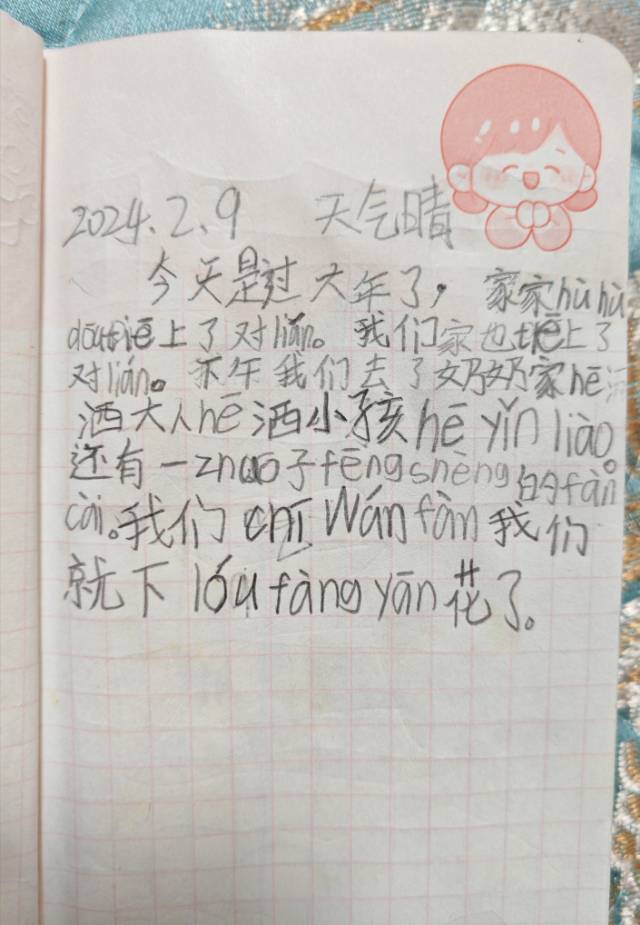 2024.2.9 天气晴
今天是过大年了，家家hù hù
dōu tiē上了对lián。我们家也tiē上了
对lián。下午我们去了奶奶家hē
洒大人hē洒小孩hē yǐn liào。
还有一zhuō子fēng shèng的fàn
cài。我们chī Wán fàn我们
就下lóu fàng yān花了。